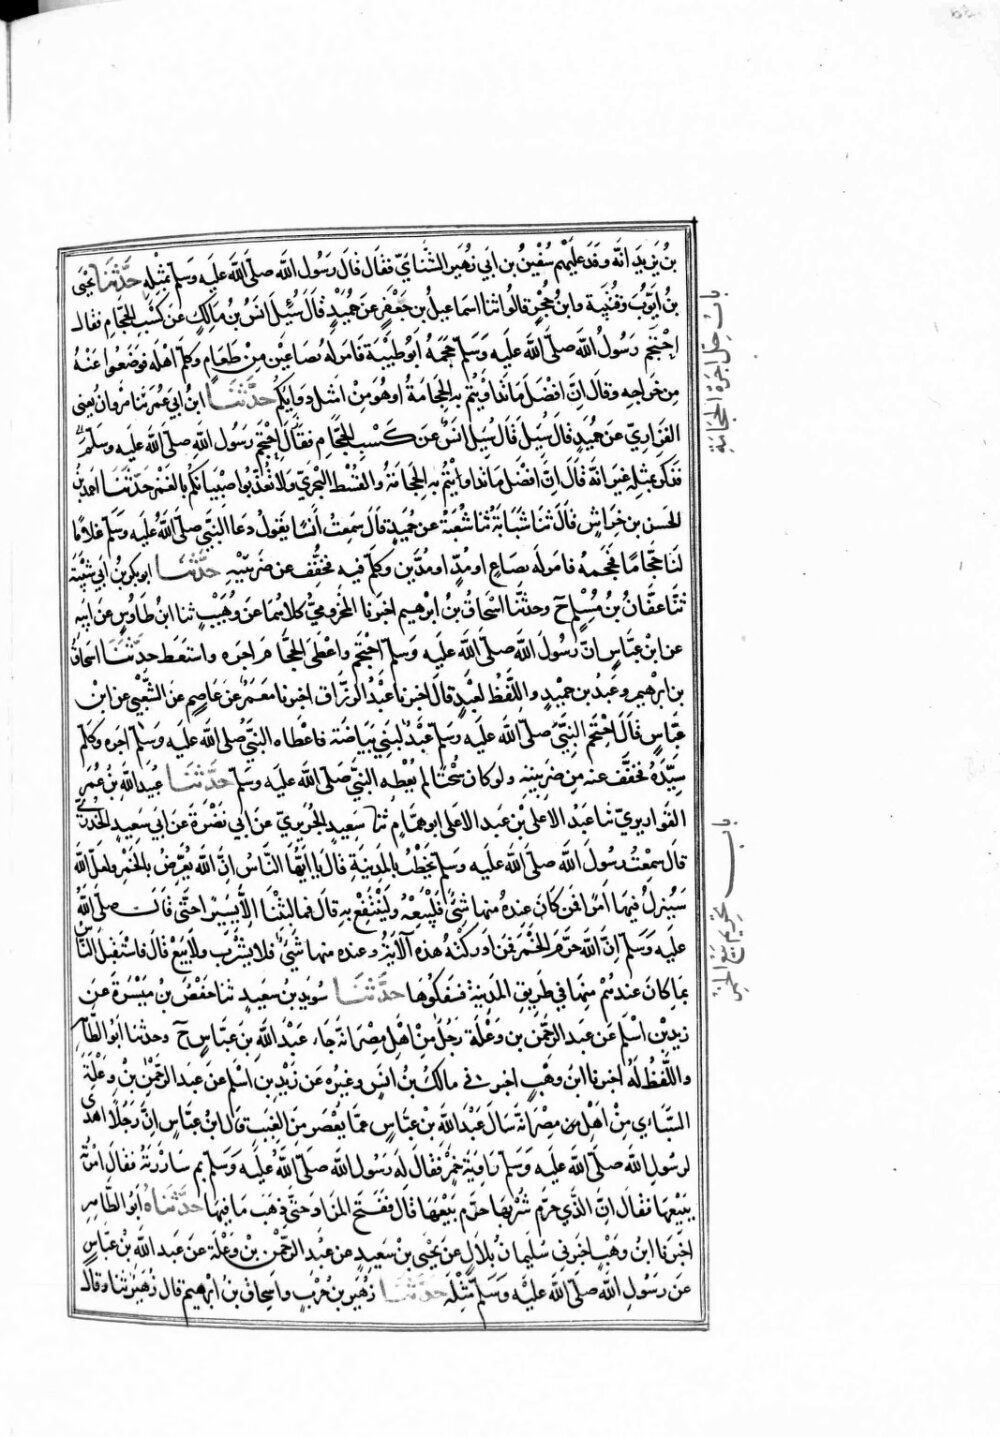 بن يزيد انه وفد عليهم سفين بن ابي زهير الشنائي فقال قال رسول الله صلى الله عليه وسلم بمثله حدثنا يحيى
بن ايوب وقتيبة وابن حجر قالوا ثنا اسماعيل بن جعفر عن حميد قال سئل انس بن مالك عن كسب الحجام فقال
احتجم رسول الله صلى الله عليه وسلم حجمه ابو طيبة فامر له بصاعين من طعام وكلم اهله فوضعوا عنه
من خراجه وقال ان افضل ما تداويتم به الحجامة او هو من امثل دوايكم حدثنا ابن ابي عمر ثنا مروان يعني
الفزاري عن حميد قال سيل قال سيل انس عن كسب الحجام فقال احتجم رسول الله صلى الله عليه وسلم
فذكر بمثله غير انه قال ان افضل ما تداويتم به الحجامة والقسط البحري ولا تعذبوا صبيانكم بالغمز حدثنا احمد بن
الحسن بن خراش قال ثنا شبابة ثنا شعبة عن حميد قال سمعت انسا يقول دعا النبي صلى الله عليه وسلم غلاما
لنا حجاما فحجمه فامر له بصاع او مد او مدين وكلم فيه فخفف عن ضريبته حدثنا ابو بكر بن ابي شيبة
ثنا عفان بن مسلم ح وحدثنا اسحاق بن ابرهيم اخبرنا المخزومي كلاهما عن وهيب ثنا ابن طاوس عن ابيه
عن ابن عباس ان رسول الله صلى الله عليه وسلم احتجم واعطى الحجام اجره واستعط حدثنا اسحاق
بن ابرهيم وعبد بن حميد واللفظ لعبد قال اخبرنا عبد الرزاق اخبرنا معمر عن عاصم عن الشعبي عن ابن
عباس قال احتجم النبي صلى الله عليه وسلم عبد لبني بياضة فاعطاه النبي صلى الله عليه وسلم اجره وكلم
سيده فخفف عنه من ضريبته ولو كان سحتا لم يعطه النبي صلى الله عليه وسلم حدثنا عبيد الله بن عمر
القواريري ثنا عبد الاعلى بن عبد الاعلى ابو همام ثنا سعيد الجريري عن ابي نضرة عن ابي سعيد الخدري
قال سمعت رسول الله صلى الله عليه وسلم يخطب بالمدينة قال يا ايها الناس ان الله يعرض بالخمر ولعل الله
سينزل فيها امرا فمن كان عنده منها شيء فليبعه ولينتفع به قال فما لبثنا الا يسيرا حتى قال صلى الله
عليه وسلم ان الله حرم الخمر فمن ادركته هذه الآية وعنده منها شيء فلا يشرب ولا يبع قال فاستقبل الناس
بما كان عندهم منها في طريق المدينة فسفكوها حدثنا سويد بن سعيد ثنا حفص بن ميسرة عن
زيد بن اسلم عن عبد الرحمن بن وعلة رجل من اهل مصر انه جاء عبد الله بن عباس ح وحدثنا ابو الطاهر
واللفظ له اخبرنا ابن وهب اخبرني مالك بن انس وغيره عن زيد بن اسلم عن عبد الرحمن بن وعلة
السبائي من اهل مصر انه سال عبد الله بن عباس عما يعصر من العنب قال ابن عباس ان رجلا اهدى
لرسول الله صلى الله عليه وسلم راوية خمر فقال له رسول الله صلى الله عليه وسلم بم ساررته فقال امرته
ببيعها فقال ان الذي حرم شربها حرم بيعها قال ففتح المزاد حتى ذهب ما فيها حدثناه ابو الطاهر
اخبرنا ابن وهب اخبرني سليمان بن بلال عن يحيى بن سعيد عن عبد الرحمن بن وعلة عن عبد الله بن عباس
عن رسول الله صلى الله عليه وسلم مثله حدثنا زهير بن حرب واسحاق بن ابرهيم قال زهير ثنا وقال
باب حل اجرة الحجامة
باب تحريم بيع الخمر